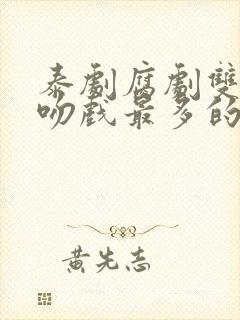 泰劇腐劇雙
吻戲最多的
黃先志